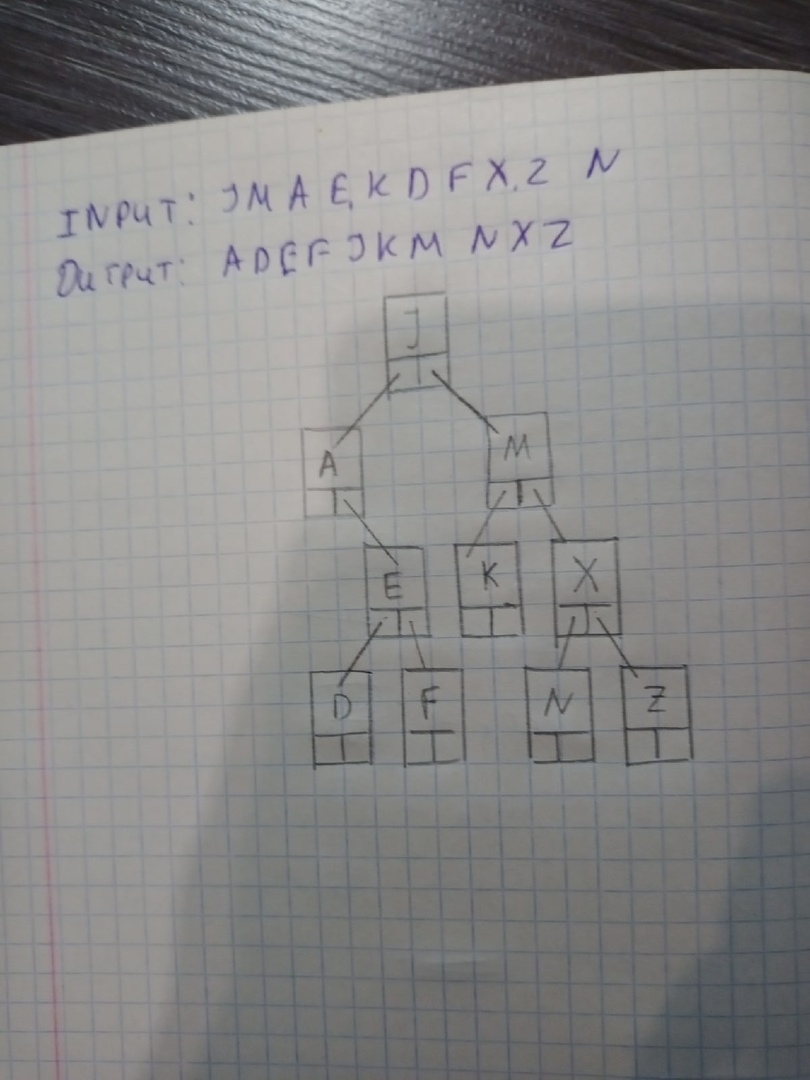 INPUT: J M A E, K D F X, Z N
OUTPUT: A D E F J K M N X Z
J
A M
E K X
D F N Z